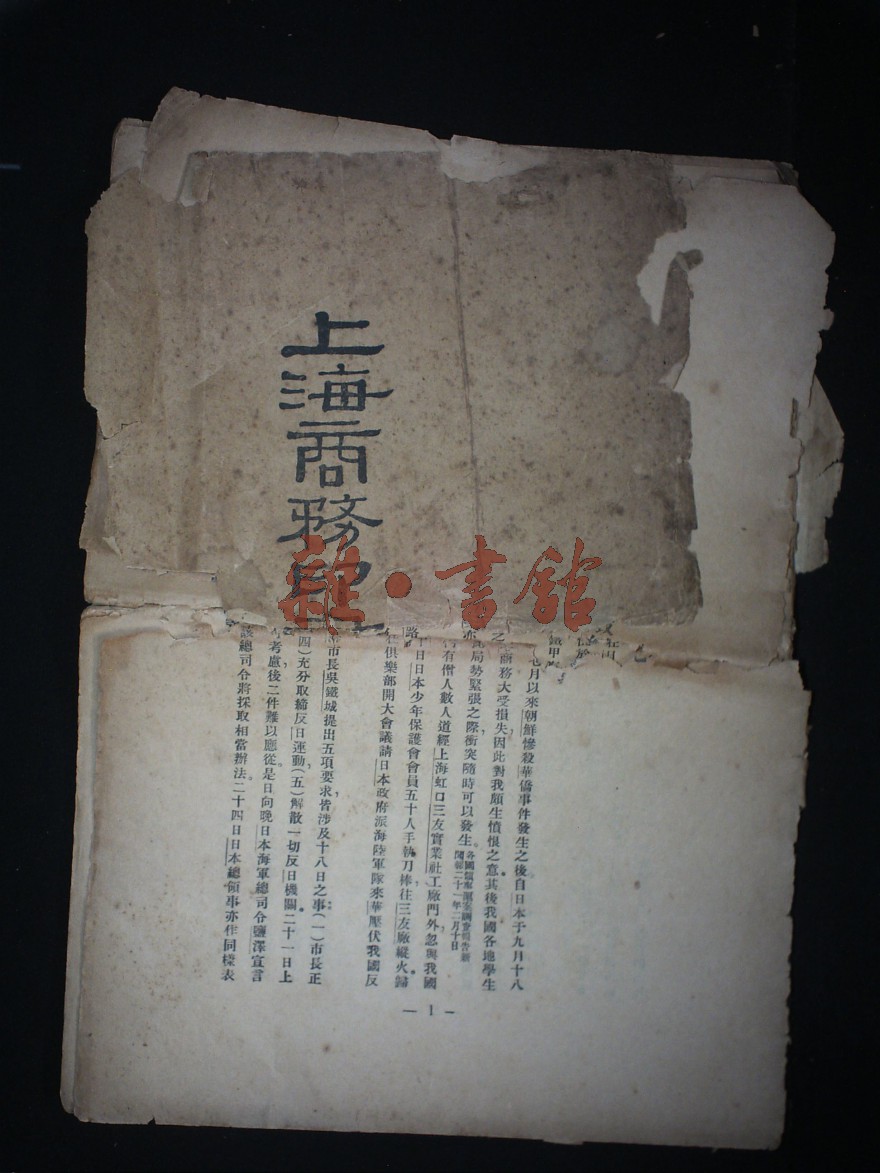 上海商務印
雜·書館
七月以來朝鮮慘殺華僑事件發生之後自日本于九月十八
之商務大受損失因此對我頗生憤恨之意其後我國各地學生
局勢緊張之際衝突隨時可以發生
各國領事滬案調查報告新
聞報二十一年二月十日
有僧人數人道經上海虹口三友實業社工廠門外忽與我國
十日日本少年保護會會員五十人手執刀棒往三友廠縱火歸
俱樂部開大會議請日本政府派海陸軍隊來華壓伏我國反
市長吳鐵城提出五項要求皆涉及十八日之事(一)市長正
四)充分取締反日運動(五)解散一切反日機關二十一日上
考慮後二件難以應從是日向晚日本海軍總司令鹽澤宣言
該總司令將採取相當辦法二十四日日本總領事亦作同樣表
— 1 —